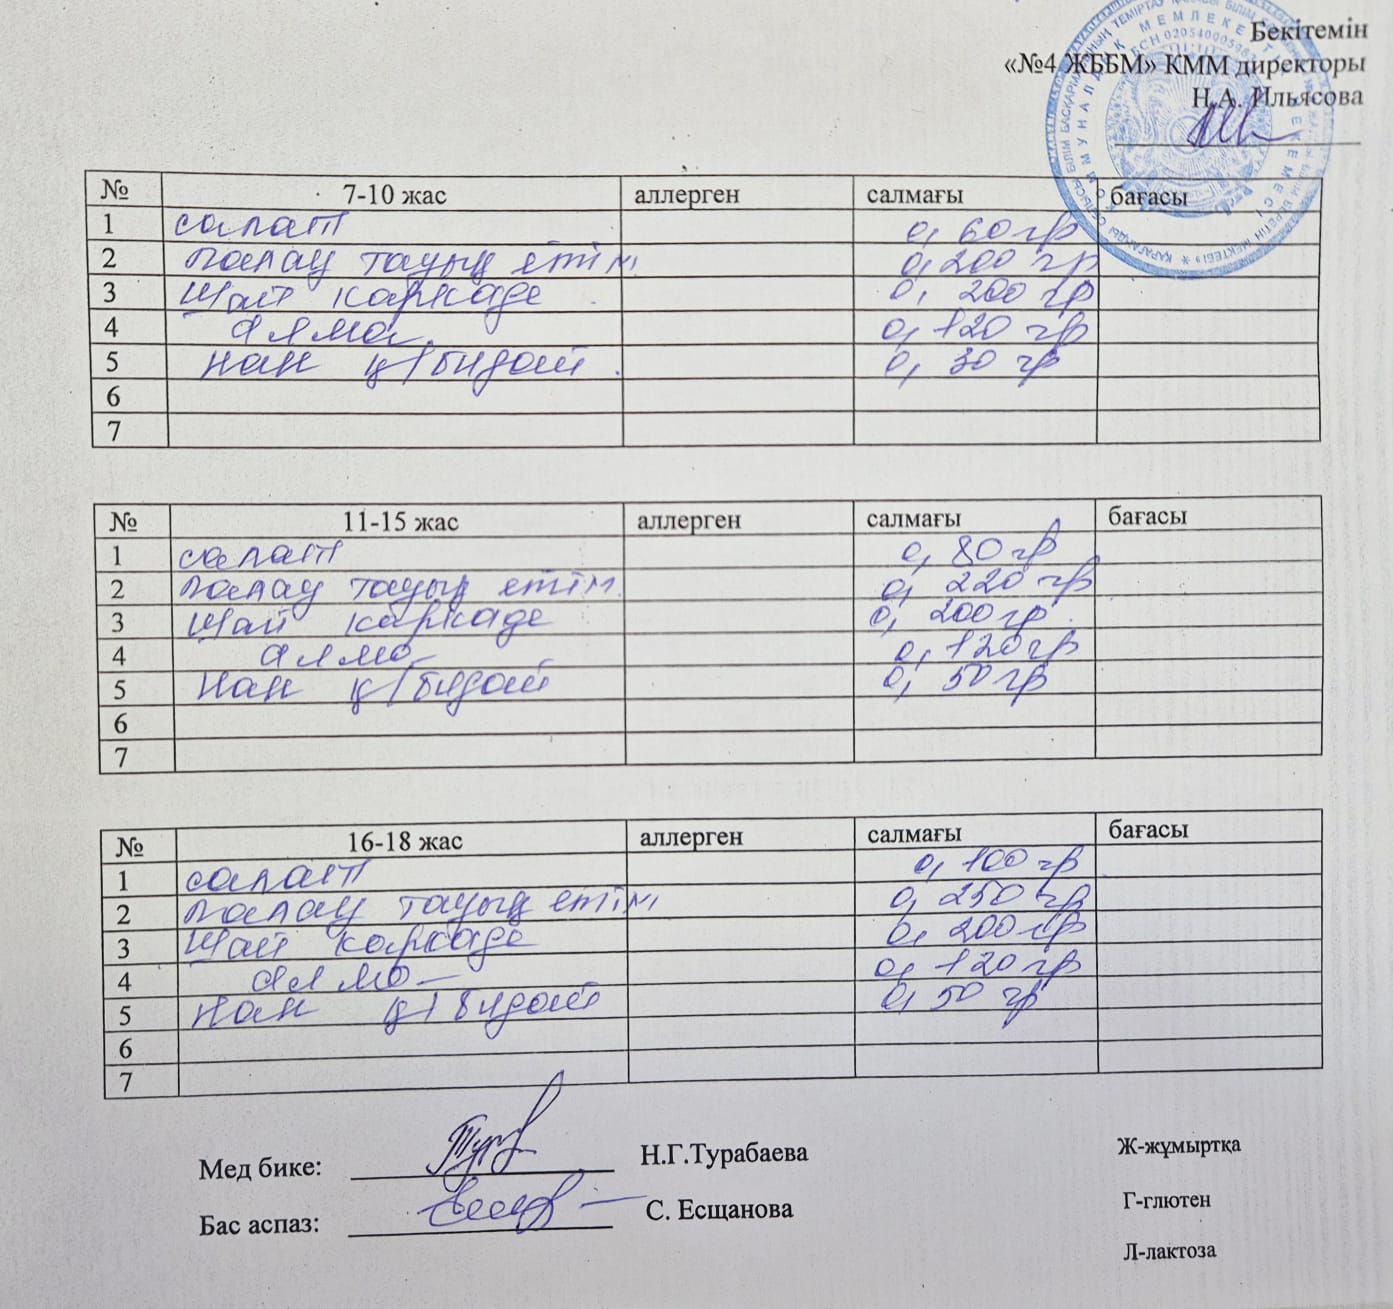 Бекітемін
«№4 ЖББМ» КММ директоры
Н.А. Ильясова
№ 7-10 жас аллерген салмағы бағасы
1 салат 0, 60 гр
2 палау тауық етім 0, 200 гр
3 Шай каркаде 0, 200 гр
4 алма 0, 120 гр
5 нан қ/бидай 0, 30 гр
6
7
№ 11-15 жас аллерген салмағы бағасы
1 салат 0, 80 гр
2 палау тауық етім 0, 220 гр
3 Шай каркаде 0, 200 гр
4 алма 0, 120 гр
5 нан қ/бидай 0, 50 гр
6
7
№ 16-18 жас аллерген салмағы бағасы
1 салат 0, 100 гр
2 палау тауық етім 0, 250 гр
3 Шай каркаде 0, 200 гр
4 алма 0, 120 гр
5 нан қ/бидай 0, 50 гр
6
7
Мед бике: Н.Г.Турабаева
Бас аспаз: С. Есщанова
Ж-жұмыртқа
Г-глютен
Л-лактоза